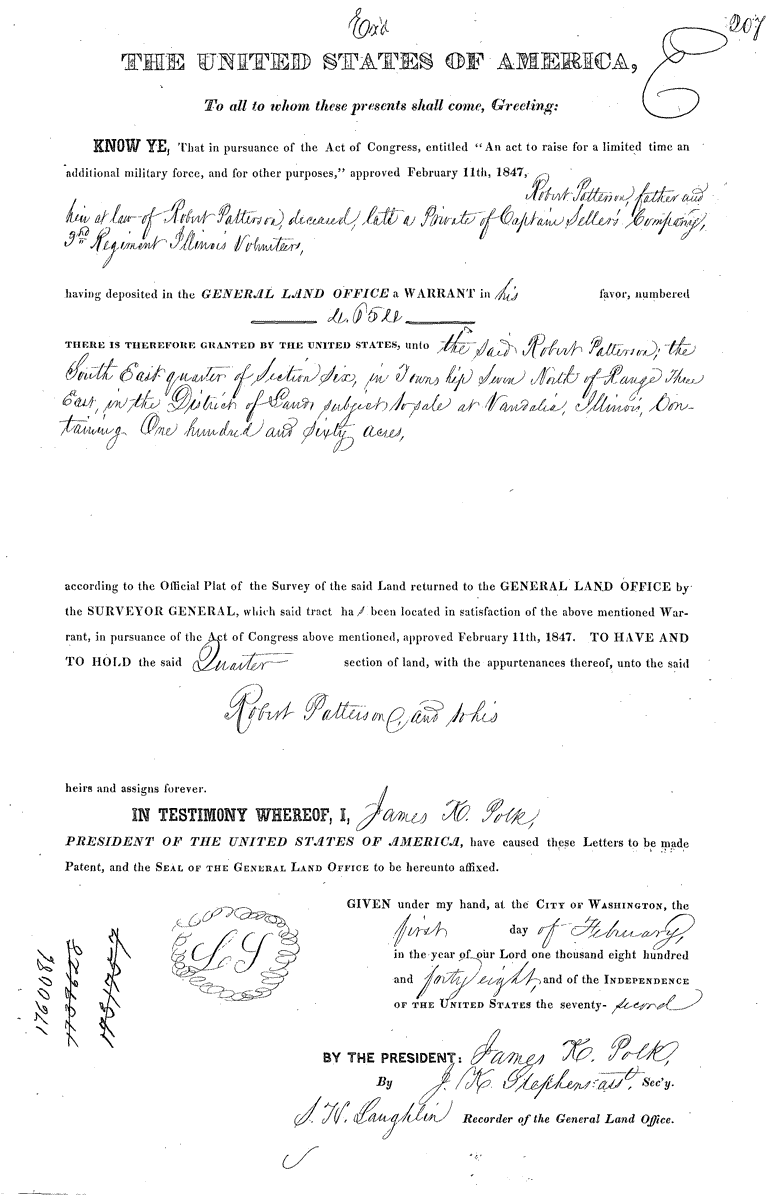 Ex'd
207
THE UNITED STATES OF AMERICA,
To all to whom these presents shall come, Greeting:
KNOW YE, That in pursuance of the Act of Congress, entitled "An act to raise for a limited time an
additional military force, and for other purposes," approved February 11th, 1847,
Robert Patterson, father and
heir at law of Robert Patterson, deceased, late a Private of Captain Seller's Company,
3rd Regiment Illinois Volunteers,
having deposited in the GENERAL LAND OFFICE a WARRANT in his favor, numbered
THERE IS THEREFORE GRANTED BY THE UNITED STATES, unto the said Robert Patterson, the
South East quarter of Section Six, in Township Seven North of Range Three
East, in the District of Lands subject to sale at Vandalia, Illinois, Con-
taining One hundred and sixty acres,
according to the Official Plat of the Survey of the said Land returned to the GENERAL LAND OFFICE by
the SURVEYOR GENERAL, which said tract has been located in satisfaction of the above mentioned War-
rant, in pursuance of the Act of Congress above mentioned, approved February 11th, 1847. TO HAVE AND
TO HOLD the said Quarter section of land, with the appurtenances thereof, unto the said
Robert Patterson, and to his
heirs and assigns forever.
IN TESTIMONY WHEREOF, I, James K. Polk,
PRESIDENT OF THE UNITED STATES OF AMERICA, have caused these Letters to be made
Patent, and the SEAL OF THE GENERAL LAND OFFICE to be hereunto affixed.
GIVEN under my hand, at the CITY OF WASHINGTON, the
first day of February,
in the year of our Lord one thousand eight hundred
and forty eight, and of the INDEPENDENCE
OF THE UNITED STATES the seventy-second
LS
BY THE PRESIDENT: James K. Polk,
By J. K. Stephens asst. Sec'y.
S. H. Laughlin Recorder of the General Land Office.